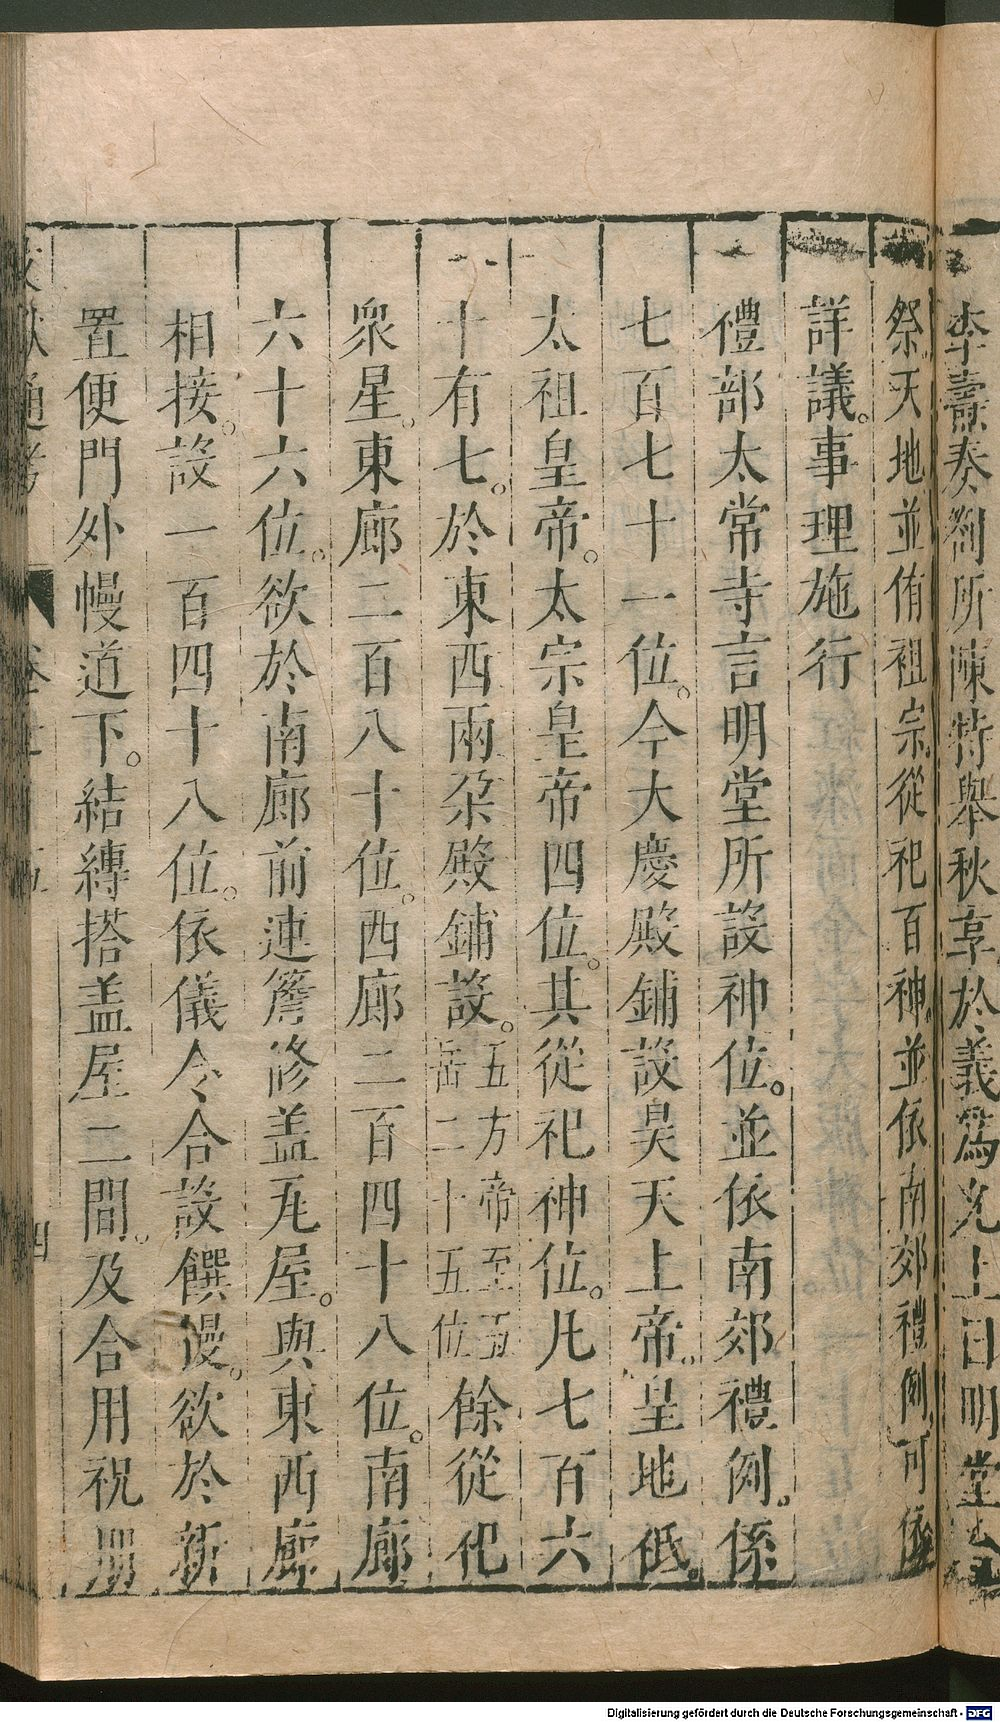 李燾奏劄所陳特舉秋享於義爲允上曰明堂
祭天地並侑祖宗從祀百神並依南郊禮例可依
詳議。事理施行
禮部太常寺言明堂所設神位。並依南郊禮例。係
七百七十一位。今大慶殿鋪設昊天上帝。皇地祗。
太祖皇帝。太宗皇帝四位。其從祀神位。凡七百六
十有七。於東西兩朶殿鋪設。五方帝至五岳二十五位餘從祀
衆星。東廊二百八十位。西廊二百四十八位。南廊
六十六位。欲於南廊前連簷修盖瓦屋。與東西廊
相接。設一百四十八位。依儀令合設饌幔。欲於新
置便門外幔道下。結縳搭盖屋二間。及合用祝册
文獻通考 卷七十五 四
Digitalisierung gefördert durch die Deutsche Forschungsgemeinschaft - DFG